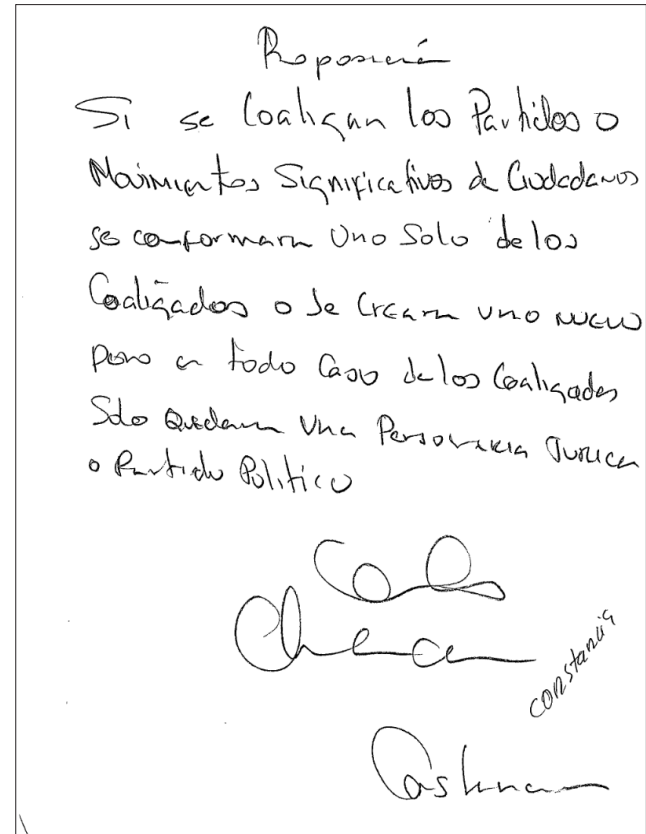 Proposición
Si se Coaligan los Partidos o
Movimientos Significativos de Ciudadanos
se conformara Uno Solo de los
Coaligados o Se Creara uno nuevo
pero en todo Caso de los Coaligados
Solo Quedara Una Personeria Juridica
o Partido Politico
constancia